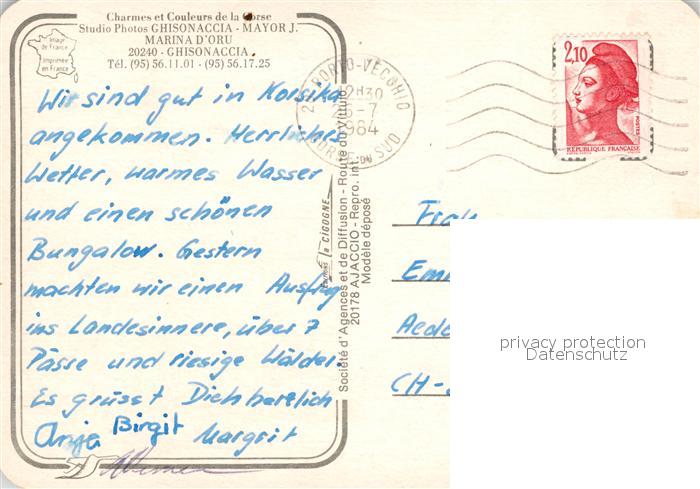 Charmes et Couleurs de la Corse
Studio Photos GHISONACCIA - MAYOR J.
MARINA D'ORU
20240 - GHISONACCIA
Tél. (95) 56.11.01 - (95) 56.17.25
Image
de France
Imprimée
en France
Wir sind gut in Korsika
angekommen. Herrliches
Wetter, warmes Wasser
und einen schönen
Bungalow. Gestern
machten wir einen Ausflug
ins Landesinnere, über 7
Pässe und riesige Wälder.
Es grüsst Dich herzlich
Anja Birgit Margrit
Werner
PORTO-VECCHIO
12H30
26-7
1984
CORSE DU SUD
2,10
POSTES
REPUBLIQUE FRANCAISE
Editions la CIGOGNE
Société d'Agences et de Diffusion - Route du Vittulo
20178 AJACCIO - Repro. int.
Modèle déposé
CH-
privacy protection
Datenschutz